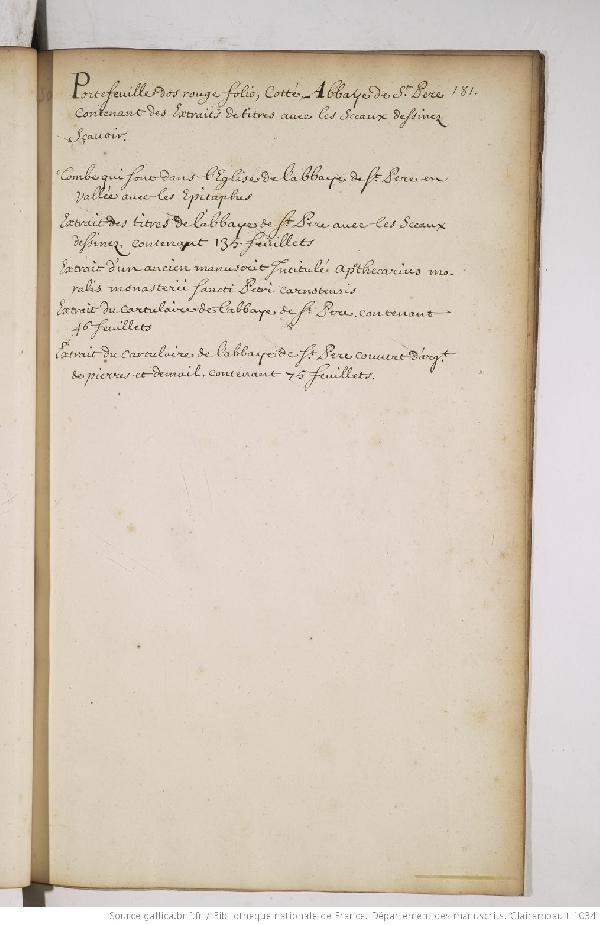 Portefeuille dos rouge folio, Cotté, Abbaye de St. Pere 181.
Contenant des Extraits de titres avec les Sceaux dessinez
Sçavoir.
Tombe qui sont dans l'Eglise de l'abbaye de St Pere en
Vallée avec les Epitaphes
Extrait des titres de l'abbaye de St Pere avec les Sceaux
dessinez, contenant 135 feuillets
Extrait d'un ancien manuscrit Intitulé Apothecarius mo-
ralis monasterii Sancti Petri carnotensis
Extrait du Cartulaire de l'abbaye de St Pere, contenant
46 feuillets
Extrait du Cartulaire de l'abbaye de St Pere couvert d'argt
de pierres et demail, contenant 75 feuillets.
Source gallica.bnf.fr / Bibliothèque nationale de France. Département des manuscrits. Clairambault 1034